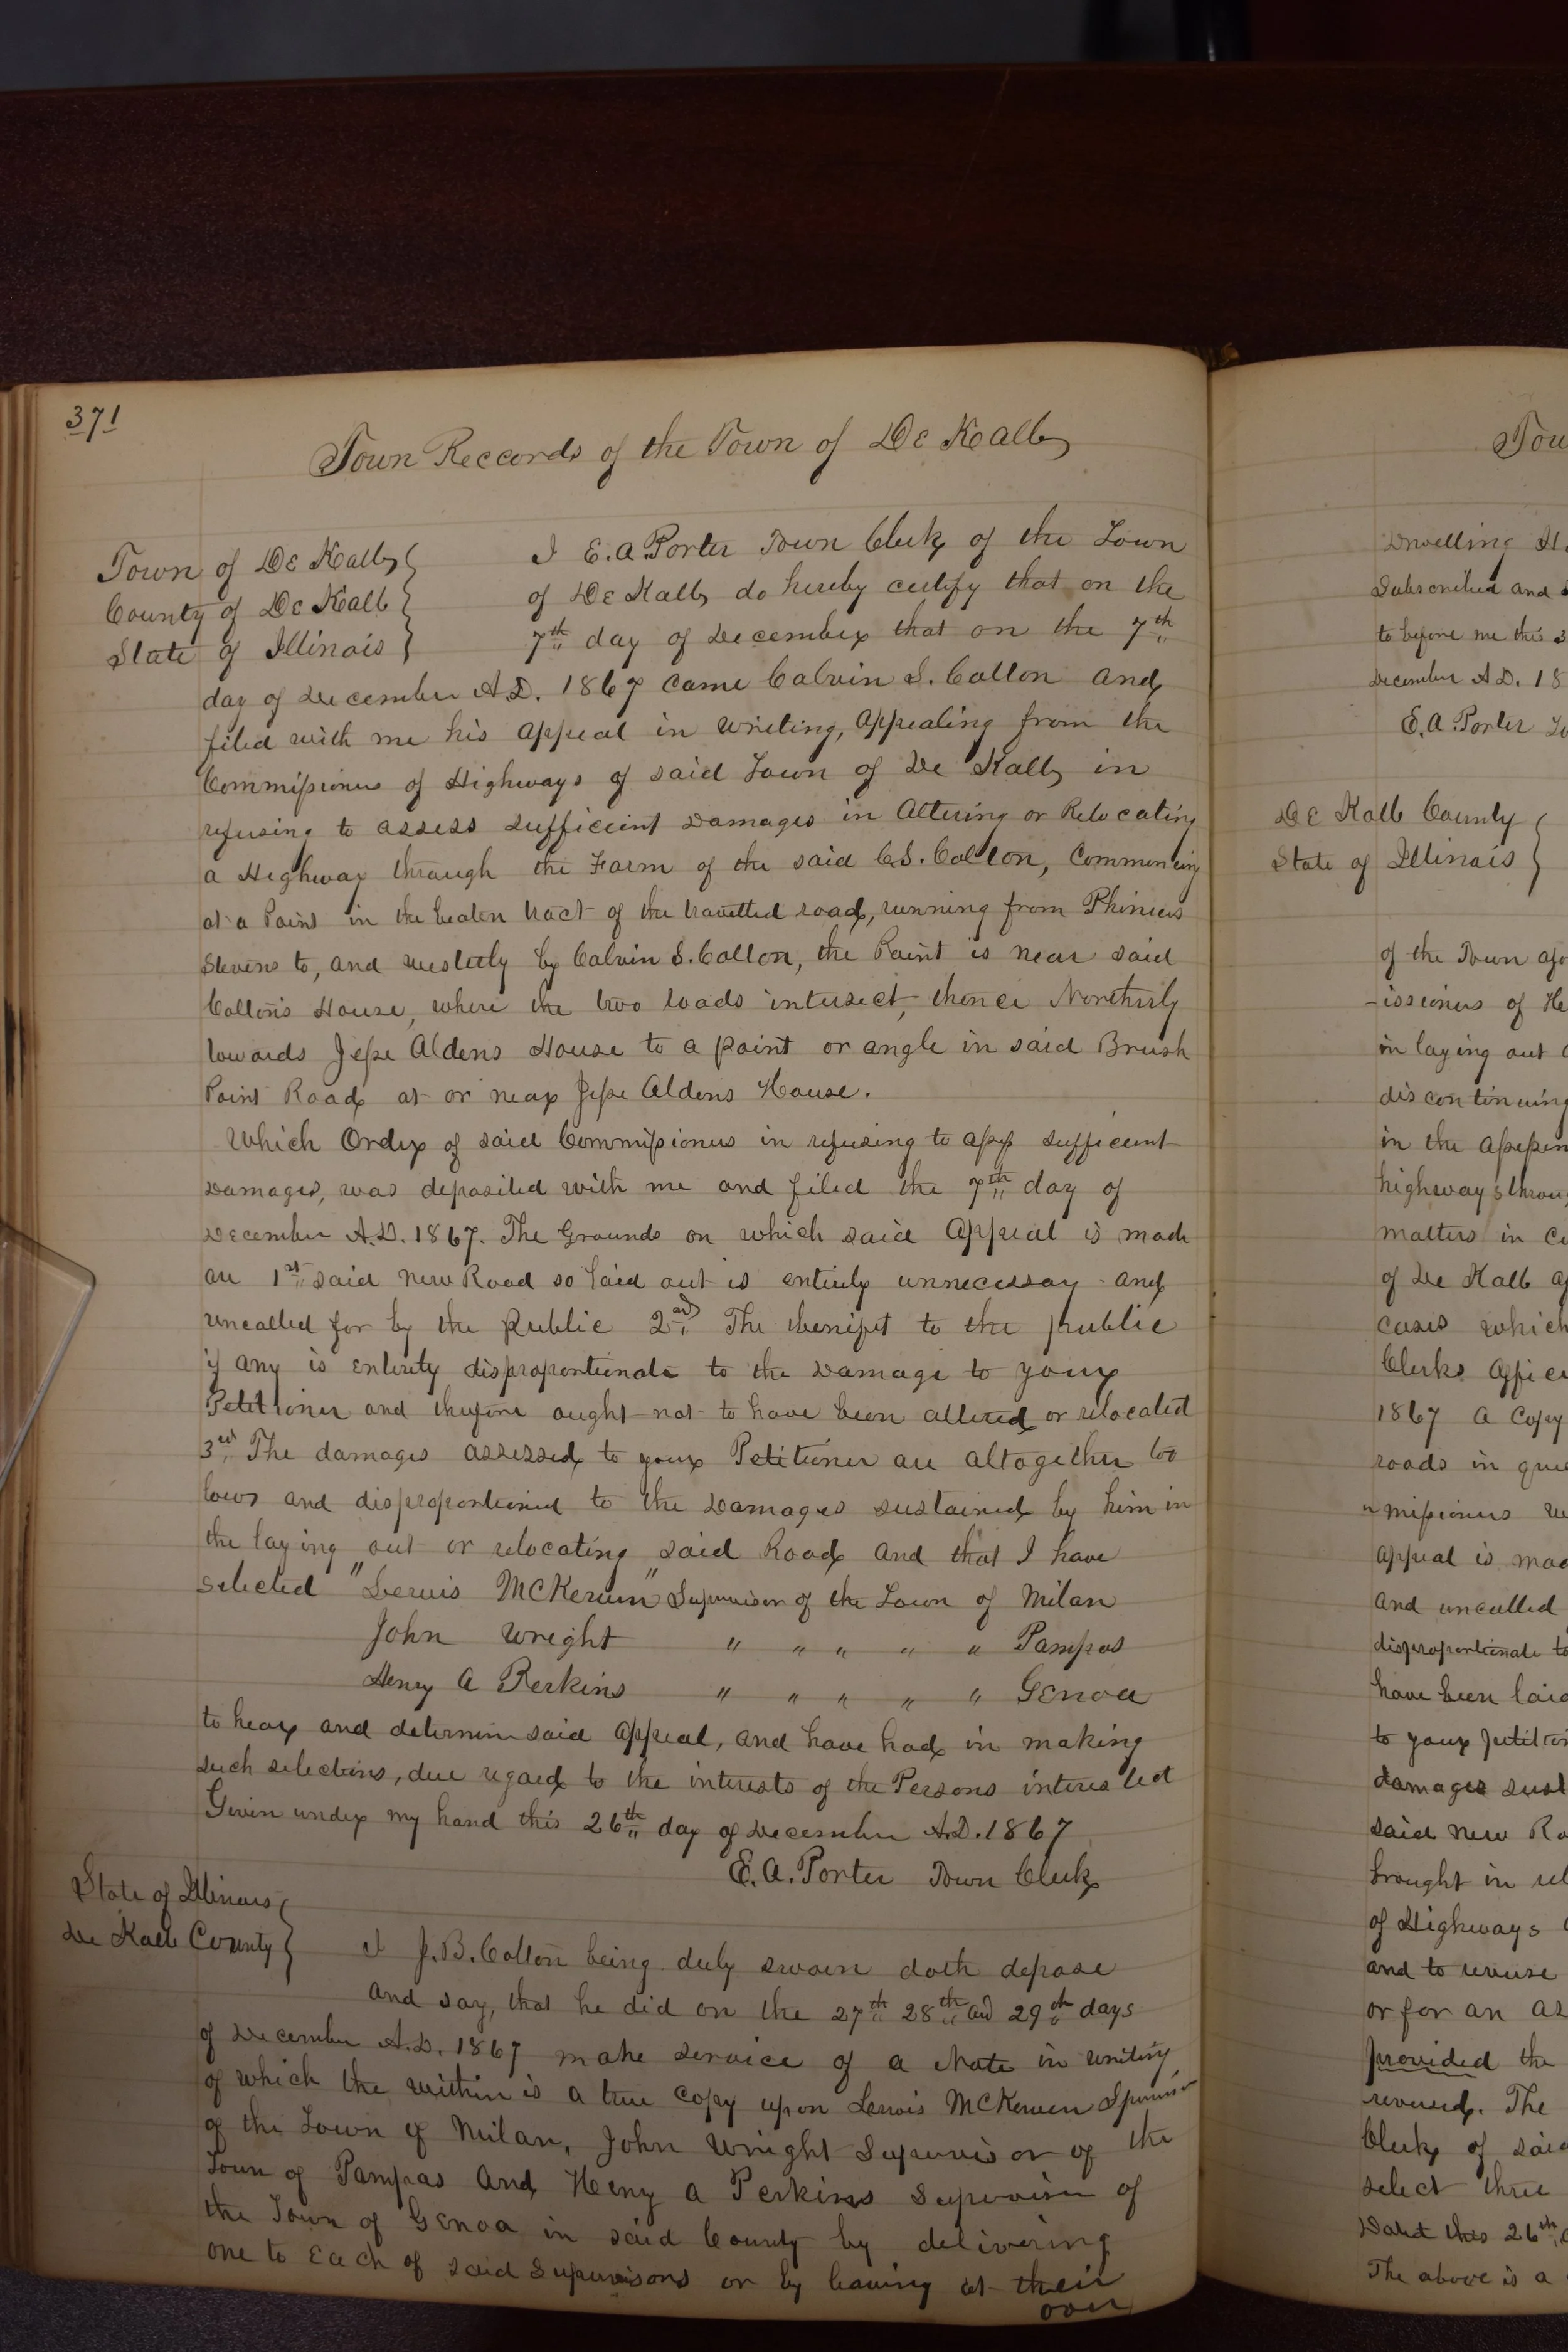 371
Town Reccords of the Town of De Kalb
Town of De Kalb
County of De Kalb
State of Illinois
I E. A. Porter Town Clerk of the Town
of De Kalb do hereby certify that on the
7th day of December that on the 7th
day of December A.D. 1867 came Calvin S. Colton and
filed with me his appeal in writing, appealing from the
Commissioners of Highways of said Town of De Kalb in
refusing to assess sufficient damages in Altering or Relocating
a Highway through the Farm of the said C. S. Colton, Commencing
at a Point in the beaten tract of the travelled road, running from Phinieas
Stevens to, and westerly by Calvin S. Colton, the Point is near said
Colton's House, where the two roads intersect, thence Northerly
towards Jesse Aldens House to a point or angle in said Brush
Point Road at or near Jesse Aldens House.
Which Order of said Commissioners in refusing to assess sufficient
damages, was deposited with me and filed the 7th day of
December A.D. 1867. The Grounds on which said Appeal is made
are 1st said new Road so laid out is entirely unnecessary and
uncalled for by the public 2nd The benifit to the public
if any is entirely disproportionate to the damage to your
Petitioner and therefore ought not to have been altered or relocated
3rd The damages assessed to your Petitioner are altogether too
low and disproportioned to the damages sustained by him in
the laying out or relocating said Road and that I have
selected "Lewis McKewin" Supervisor of the Town of Milan
John Wright " " " " " Pampas
Henry A Perkins " " " " " Genoa
to hear and determin said appeal, and have had in making
such selections, due regard to the interests of the Persons interested
Given under my hand this 26th day of December A.D. 1867
E. A. Porter Town Clerk
State of Illinois
De Kalb County
I J. B. Colton being duly sworn doth depose
and say, that he did on the 27th 28th and 29th days
of December A.D. 1867 make service of a Note in writing
of which the within is a true copy upon Lewis McKewen
of the Town of Milan, John Wright Supervisor of the
Town of Pampas and Heny A Perkins Supervisor of
the Town of Genoa in said County by delivering
one to Each of said Supervisors or by leaving at their
over
Tou
Dwelling H
Subscribed and s
to before me this 3
December A.D. 18
E. A. Porter To
De Kalb County
State of Illinois
of the Town afo
-issioners of He
in laying out
discontinuing
in the assessm
highways throu
matters in
of De Kalb a
cases which
Clerks office
1867 a Copy
roads in que
"missioners w
appeal is mad
and uncalled
disproportionate to
have been laid
to your petition
damages sust
said new Ro
brought in
of Highways
and to reverse
or for an as
provided the
reversed. The
Clerk of said
select three
Dated this 26th
The above is a